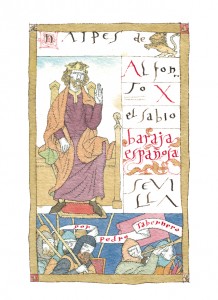 NAIPES de
Alfon
so X
el sabio
baraja
española
SEVI
LLA
por pedro tabernero